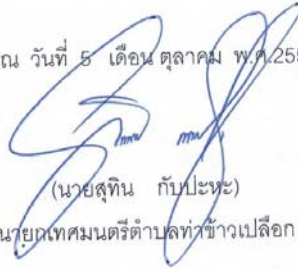 ณ วันที่ 5 เดือน ตุลาคม พ.ศ.255
(นายสุทิน กับปะหะ)
นายกเทศมนตรีตำบลท่าข้าวเปลือก